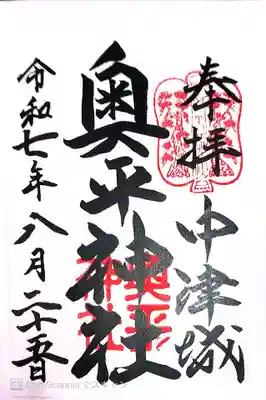 奉拝
中津城
奥平神社
奥平神社
令和七年八月二十五日
CamScannerでスキャン